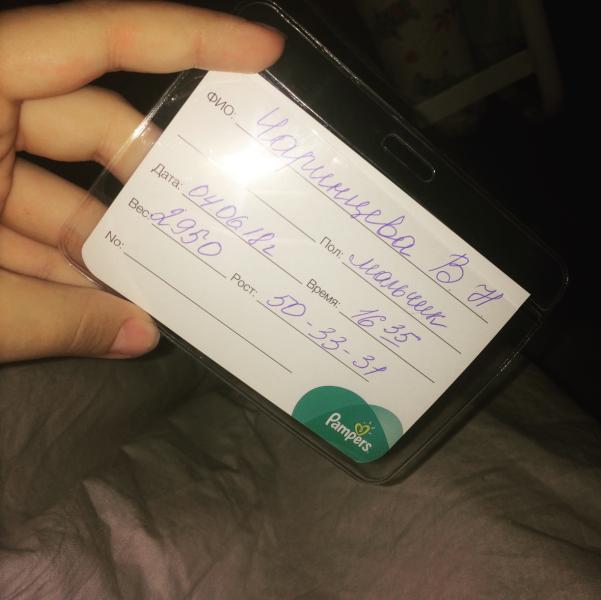 ФИО: Чаринцева В Н
Пол: мальчик
Дата: 04 06 18г Время: 16 35
Вес: 2950 Рост: 50-33-31
No:
Pampers